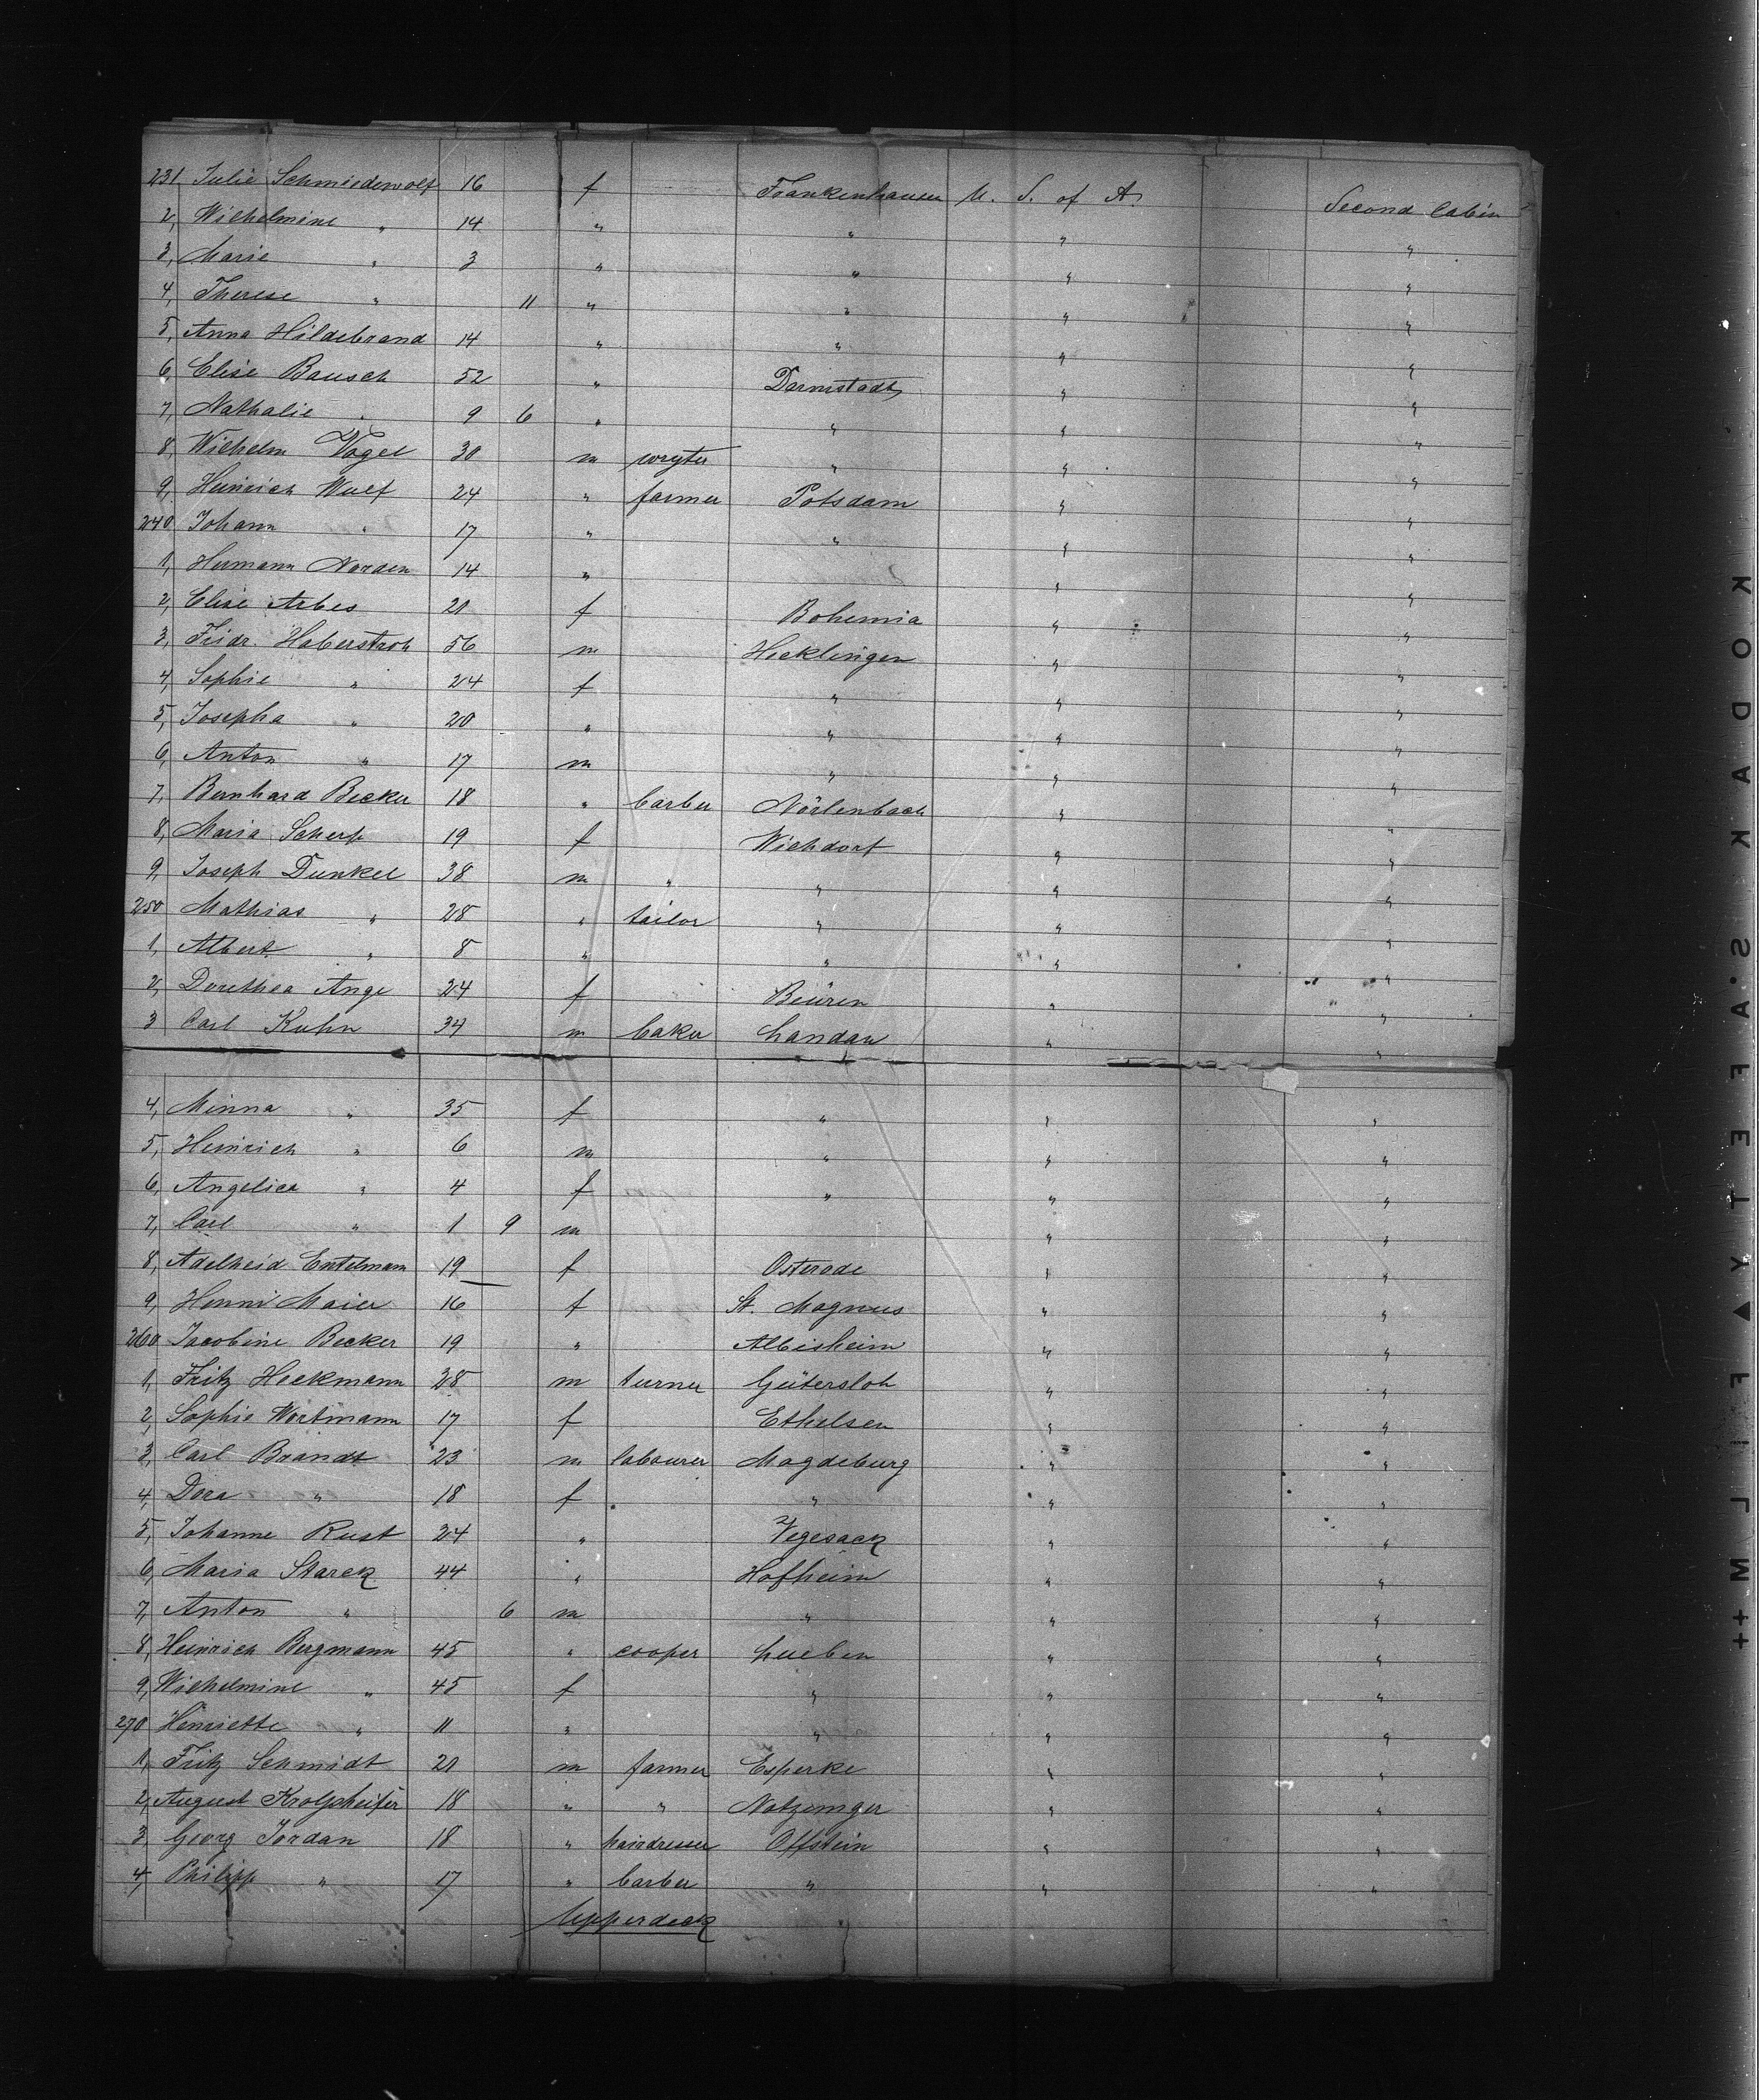 231, Julie Schmiedewolf 16 f Frankenhausen U. S. of A. Second Cabin
2, Wilhelmine " 14 " " " "
3, Marie " 3 " " " "
4, Therese " 11 " " " "
5, Anna Hildebrand 14 " " " "
6, Elise Bausch 52 " Darmstadt " "
7, Nathalie " 9 6 " " " "
8, Wilhelm Vogel 30 m wryter " " "
9, Heinrich Wulf 24 " farmer Potsdam " "
240 Johann " 17 " " " "
1, Hermann Norden 14 " " "
2, Elise Arbes 21 f Bohemia " "
3, Fridr. Haberstroh 56 m Hecklingen " "
4, Sophie " 24 f " " "
5, Josepha " 20 " " " "
6, Anton " 17 m " " "
7, Bernhard Becker 18 " barber Nörlenbach " "
8, Maria Scherp 19 f Wichdorf " "
9, Joseph Dunkel 38 m " " " "
250 Mathias " 28 " tailor " " "
1, Albert " 8 " " " "
2, Dorethea Ange 24 f Beüren " "
3 Carl Kuhn 34 m baker Landau " "
4, Minna " 35 f " " "
5, Heinrich " 6 m " " "
6, Angelica " 4 f " " "
7, Carl " 1 9 m " "
8, Adelheid Entelmann 19 f Osterode " "
9, Henni Maier 16 f St. Magnus " "
260 Jacobine Becker 19 " Albisheim " "
1, Fritz Heckmann 28 m turner Gütersloh " "
2, Sophie Wortmann 17 f Ethelsen " "
3, Carl Brandt 23 m labourer Magdeburg " "
4, Dora " 18 f " " "
5, Johanne Rust 24 " Vegesack " "
6, Maria Starck 44 " Hofheim " "
7, Anton " 6 m " " "
8, Heinrich Bergmann 45 " cooper Lueben " "
9, Wilhelmine " 45 f " " "
270 Henriette " 11 " " " "
1, Fritz Schmidt 21 m farmer Esperke " "
2, August Krolpheifer 18 " " Notzemger " "
3, Georg Jordan 18 " hairdresser Offstein " "
4, Philipp " 17 " barber " " "
Upperdeck
KODAK S'AFETY ▲ FILM ++